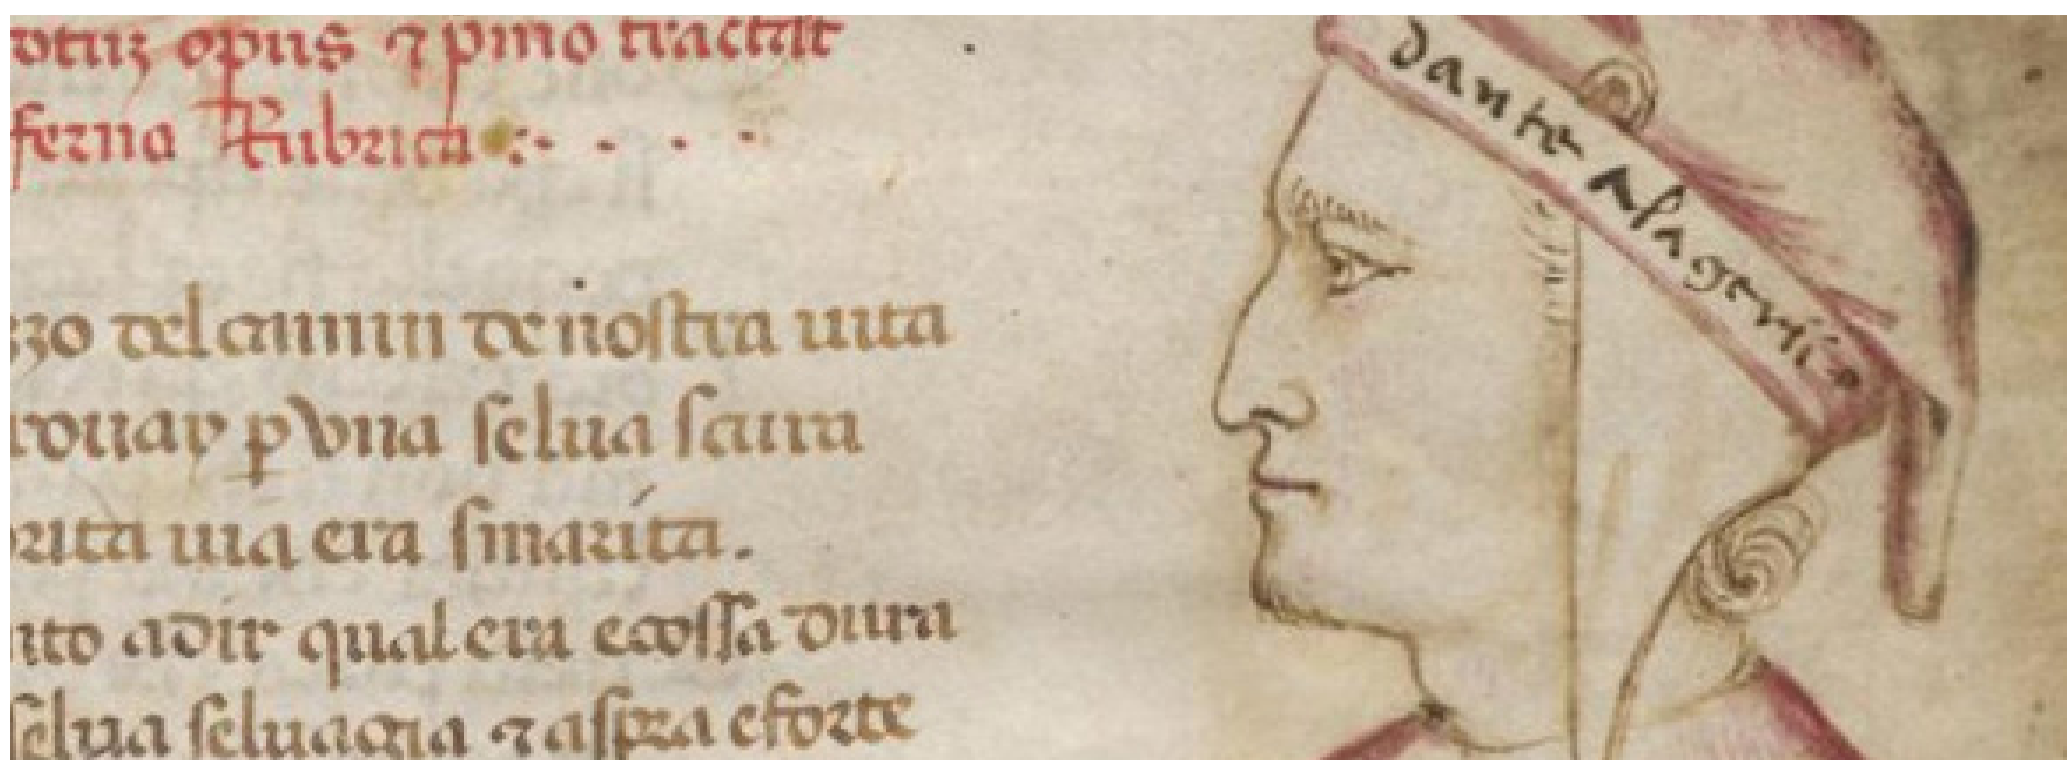 opus ⁊ pmo tractat
ferno Rubrica
zzo del camin de nostra uita
rouay ꝑ vna selua scura
rita uia era smarita.
nto adir qual era ecossa dura
selua seluagia ⁊ aspra eforte
dante alageri